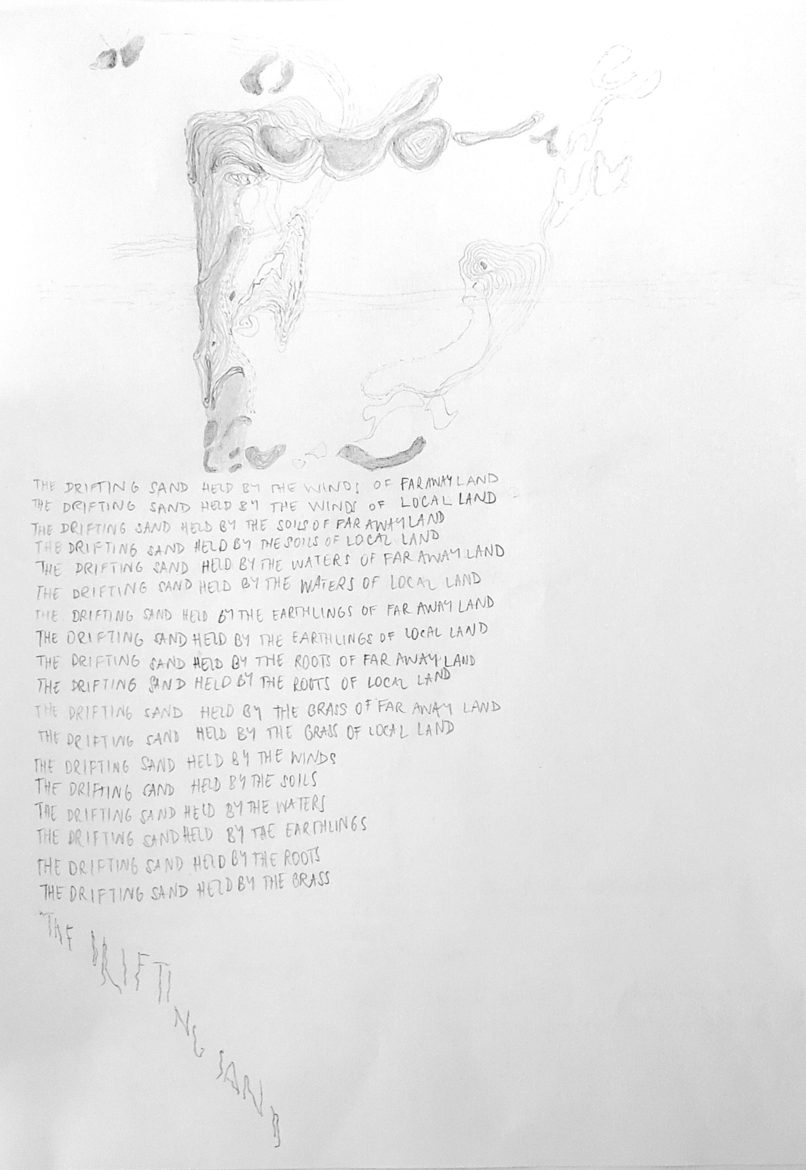 THE DRIFTING SAND HELD BY THE WINDS OF FARAWAY LAND
THE DRIFTING SAND HELD BY THE WINDS OF LOCAL LAND
THE DRIFTING SAND HELD BY THE SOILS OF FAR AWAY LAND
THE DRIFTING SAND HELD BY THE SOILS OF LOCAL LAND
THE DRIFTING SAND HELD BY THE WATERS OF FAR AWAY LAND
THE DRIFTING SAND HELD BY THE WATERS OF LOCAL LAND
THE DRIFTING SAND HELD BY THE EARTHLINGS OF FAR AWAY LAND
THE DRIFTING SAND HELD BY THE EARTHLINGS OF LOCAL LAND
THE DRIFTING SAND HELD BY THE ROOTS OF FAR AWAY LAND
THE DRIFTING SAND HELD BY THE ROOTS OF LOCAL LAND
THE DRIFTING SAND HELD BY THE GRASS OF FAR AWAY LAND
THE DRIFTING SAND HELD BY THE GRASS OF LOCAL LAND
THE DRIFTING SAND HELD BY THE WINDS
THE DRIFTING SAND HELD BY THE SOILS
THE DRIFTING SAND HELD BY THE WATERS
THE DRIFTING SAND HELD BY THE EARTHLINGS
THE DRIFTING SAND HELD BY THE ROOTS
THE DRIFTING SAND HELD BY THE GRASS
THE DRIFTING SAND